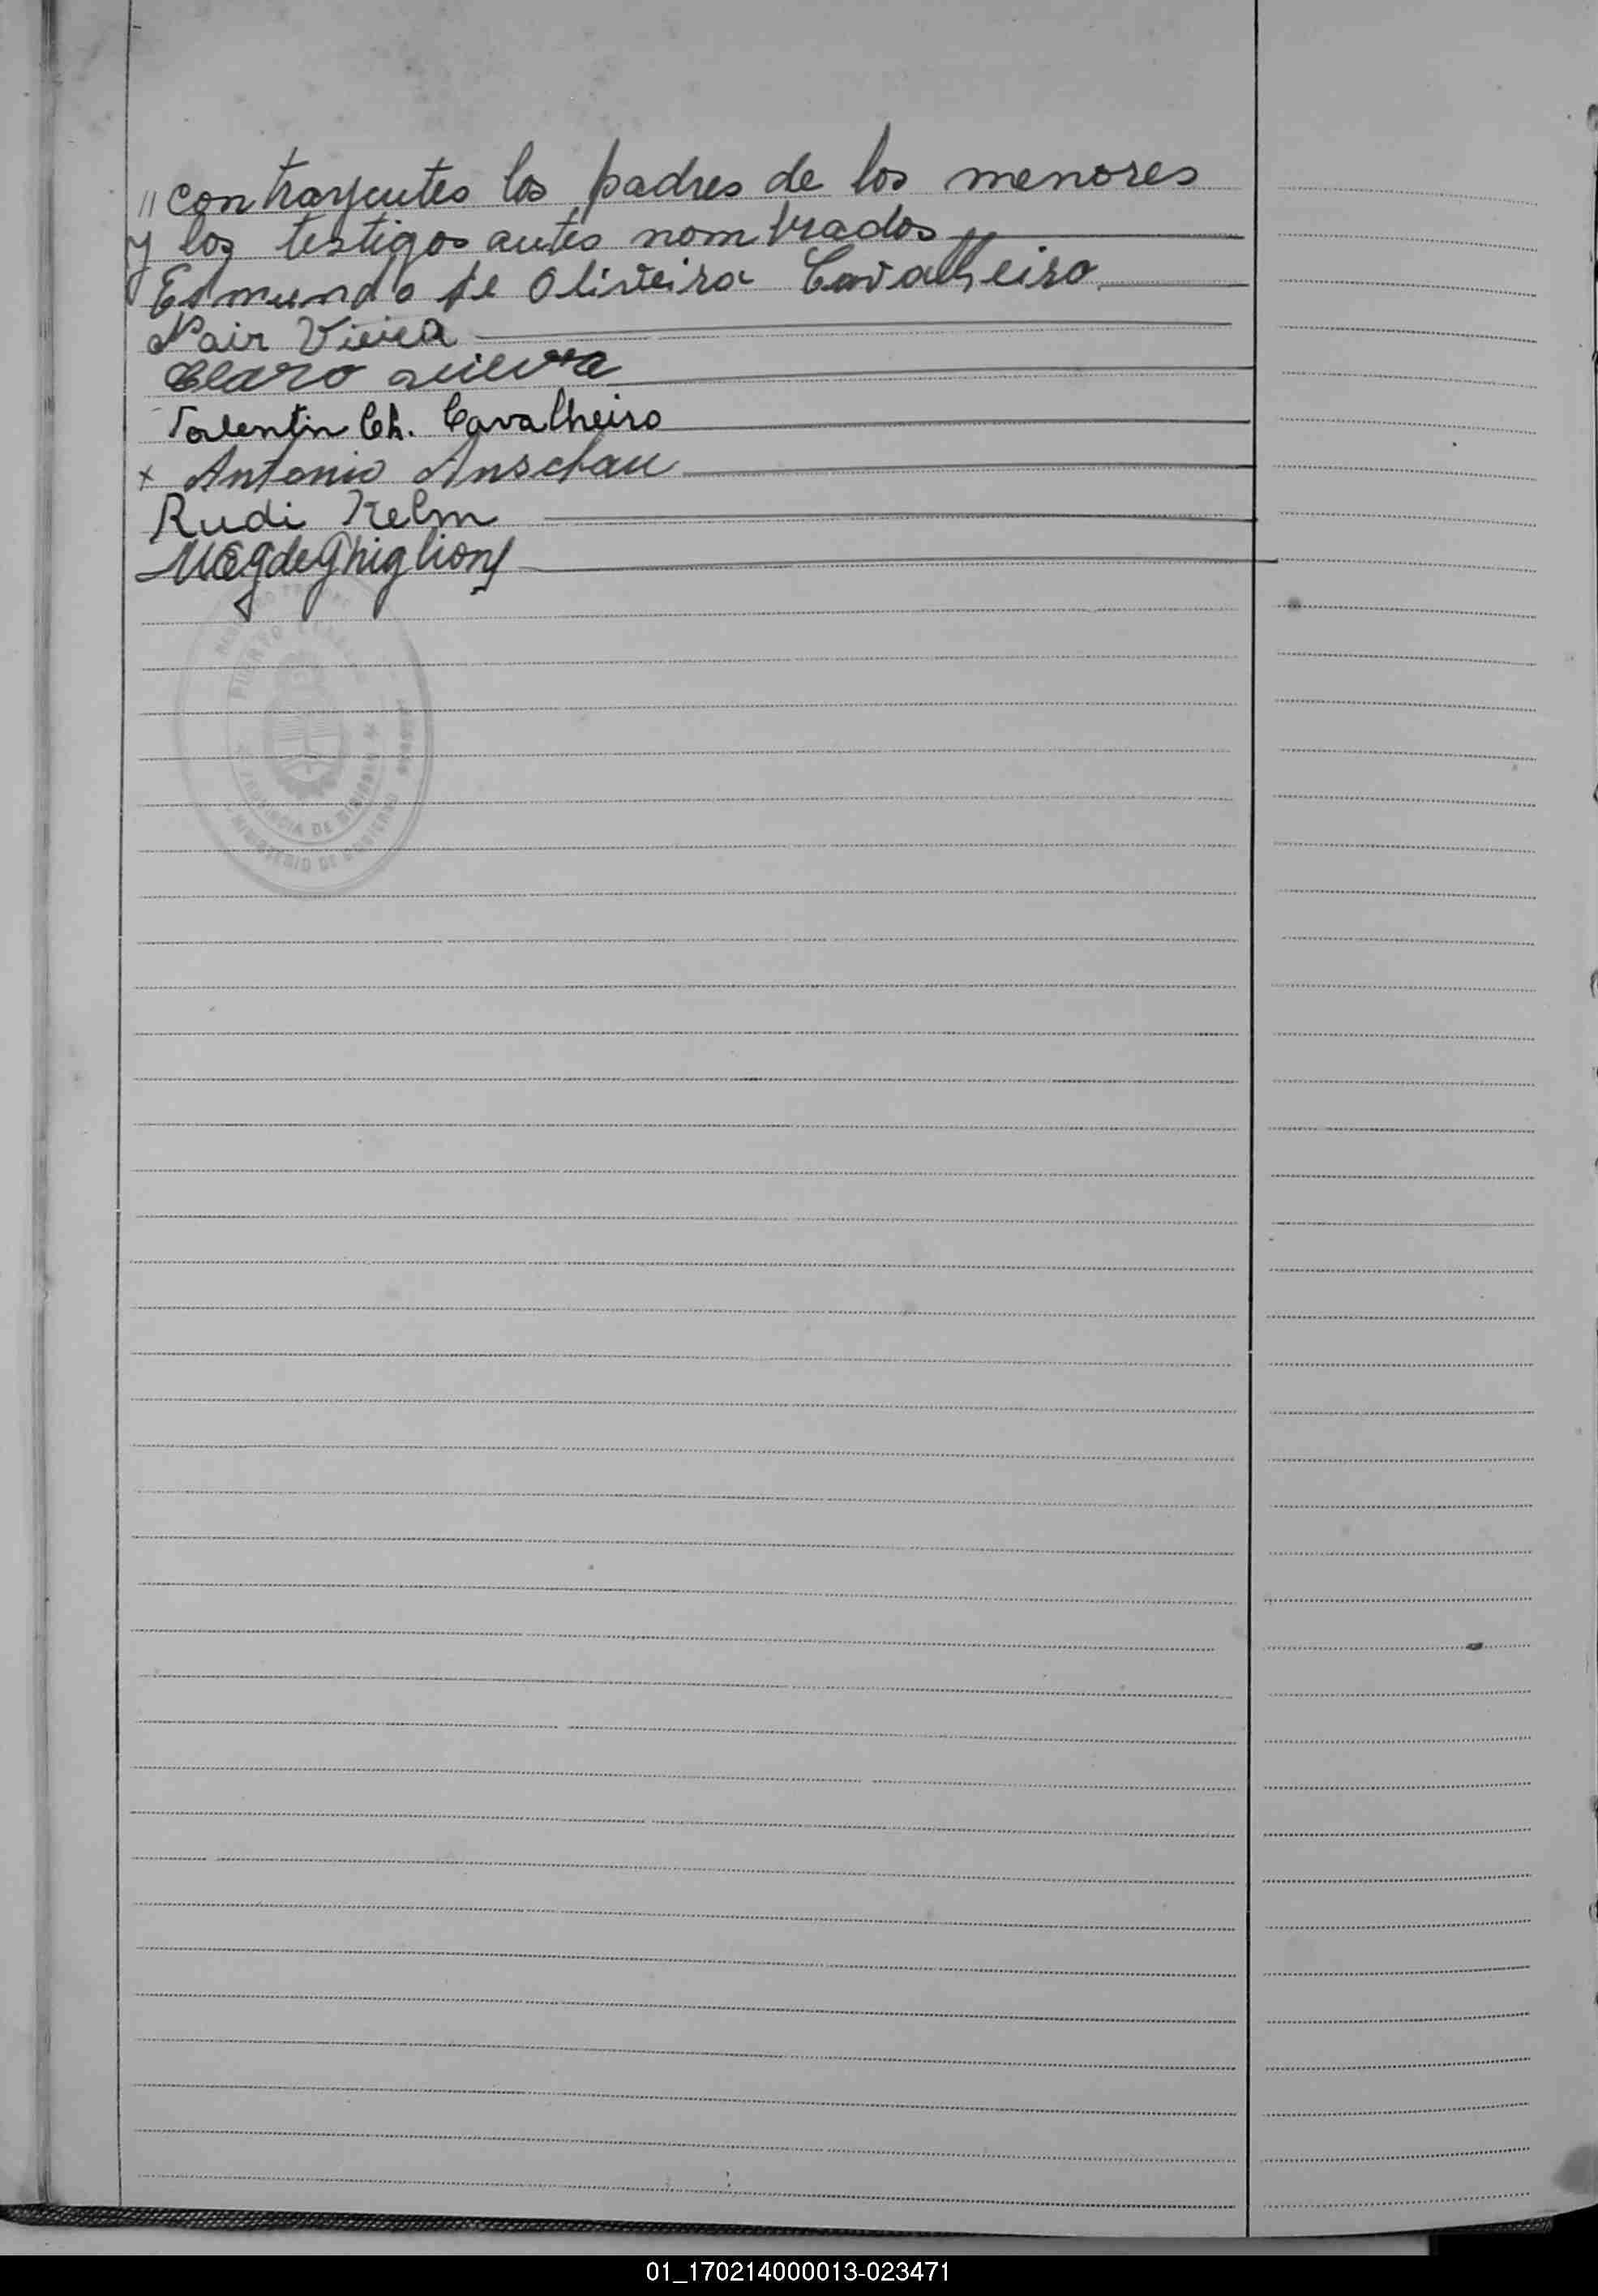 "contrayentes los padres de los menores
y los testigos antes nombrados
Esmundo de Oliveira Cavalheiro
Nair Vieira
Claro
Valentin Ch. Cavalheiro
x Antonio Anschau
Rudi Kelm
PROVINCIA DE MISIONES
MINISTERIO DE GOBIERNO
01_170214000013-023471